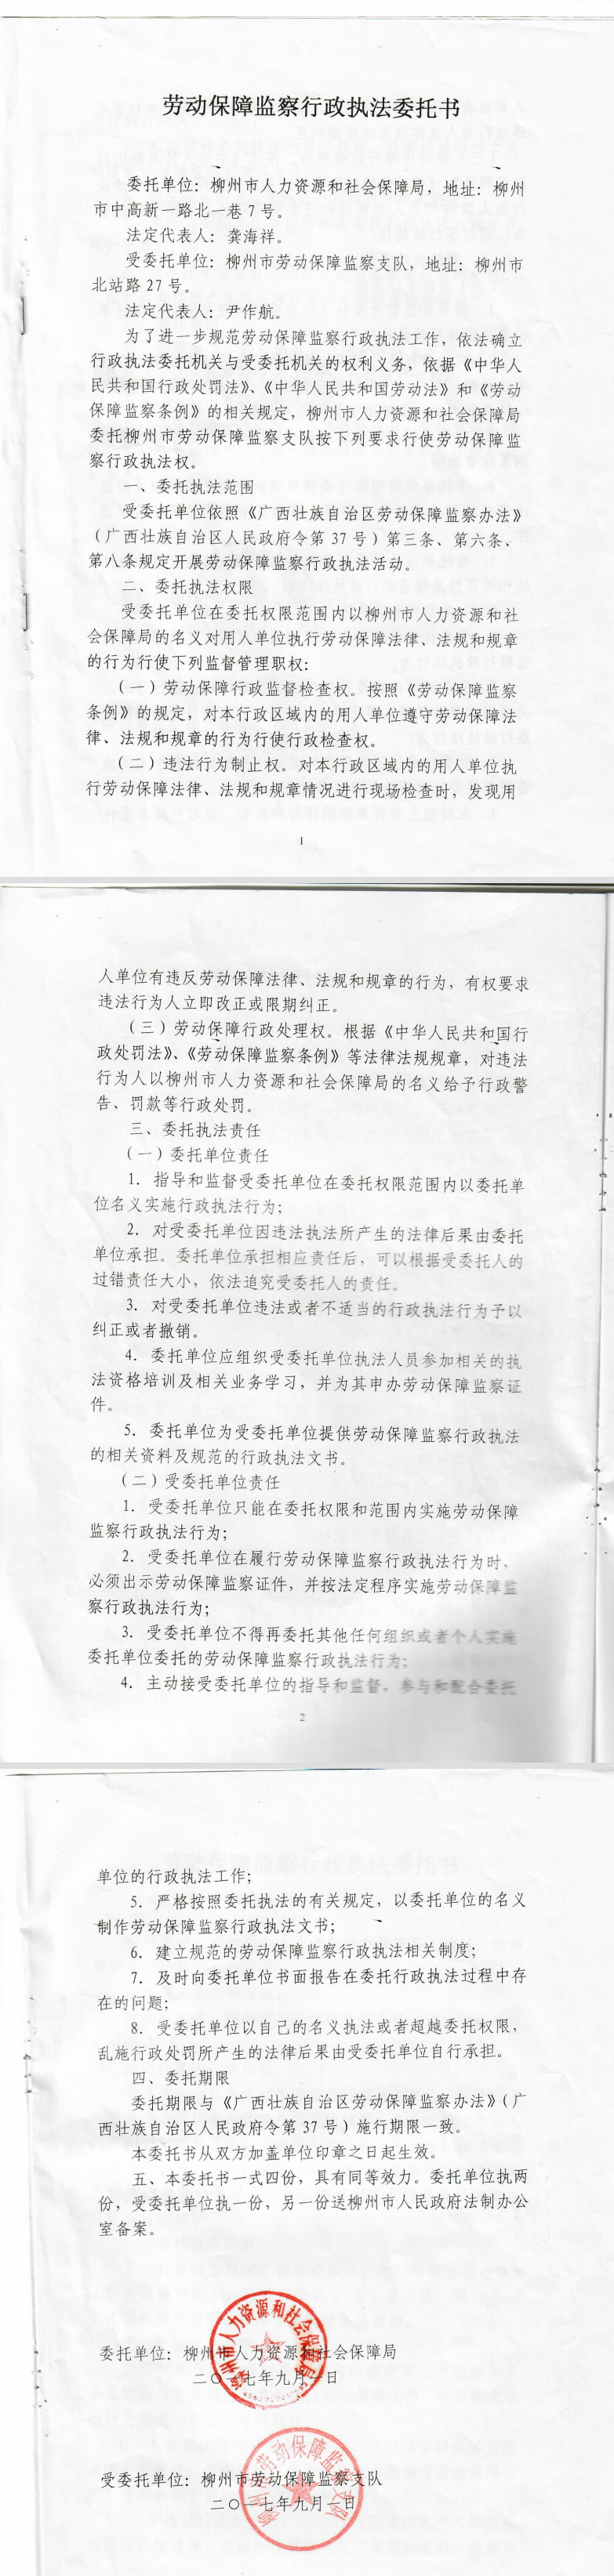 劳动保障监察行政执法委托书
委托单位：柳州市人力资源和社会保障局，地址：柳州
市中高新一路北一巷7号。
法定代表人：龚海祥。
受委托单位：柳州市劳动保障监察支队，地址：柳州市
北站路27号。
法定代表人：尹作航。
为了进一步规范劳动保障监察行政执法工作，依法确立
行政执法委托机关与受委托机关的权利义务，依据《中华人
民共和国行政处罚法》、《中华人民共和国劳动法》和《劳动
保障监察条例》的相关规定，柳州市人力资源和社会保障局
委托柳州市劳动保障监察支队按下列要求行使劳动保障监
察行政执法权。
一、委托执法范围
受委托单位依照《广西壮族自治区劳动保障监察办法》
（广西壮族自治区人民政府令第37号）第三条、第六条、
第八条规定开展劳动保障监察行政执法活动。
二、委托执法权限
受委托单位在委托权限范围内以柳州市人力资源和社
会保障局的名义对用人单位执行劳动保障法律、法规和规章
的行为行使下列监督管理职权：
（一）劳动保障行政监督检查权。按照《劳动保障监察
条例》的规定，对本行政区域内的用人单位遵守劳动保障法
律、法规和规章的行为行使行政检查权。
（二）违法行为制止权。对本行政区域内的用人单位执
行劳动保障法律、法规和规章情况进行现场检查时，发现用
1
人单位有违反劳动保障法律、法规和规章的行为，有权要求
违法行为人立即改正或限期纠正。
（三）劳动保障行政处理权。根据《中华人民共和国行
政处罚法》、《劳动保障监察条例》等法律法规规章，对违法
行为人以柳州市人力资源和社会保障局的名义给予行政警
告、罚款等行政处罚。
三、委托执法责任
（一）委托单位责任
1. 指导和监督受委托单位在委托权限范围内以委托单
位名义实施行政执法行为；
2. 对受委托单位因违法执法所产生的法律后果由委托
单位承担。委托单位承担相应责任后，可以根据受委托人的
过错责任大小，依法追究受委托人的责任。
3. 对受委托单位违法或者不适当的行政执法行为予以
纠正或者撤销。
4. 委托单位应组织受委托单位执法人员参加相关的执
法资格培训及相关业务学习，并为其申办劳动保障监察证
件。
5. 委托单位为受委托单位提供劳动保障监察行政执法
的相关资料及规范的行政执法文书。
（二）受委托单位责任
1. 受委托单位只能在委托权限和范围内实施劳动保障
监察行政执法行为；
2. 受委托单位在履行劳动保障监察行政执法行为时，
必须出示劳动保障监察证件，并按法定程序实施劳动保障监
察行政执法行为；
3. 受委托单位不得再委托其他任何组织或者个人实施
委托单位委托的劳动保障监察行政执法行为；
4. 主动接受委托单位的指导和监督，参与和配合委托
2
单位的行政执法工作；
5. 严格按照委托执法的有关规定，以委托单位的名义
制作劳动保障监察行政执法文书；
6. 建立规范的劳动保障监察行政执法相关制度；
7. 及时向委托单位书面报告在委托行政执法过程中存
在的问题；
8. 受委托单位以自己的名义执法或者超越委托权限，
乱施行政处罚所产生的法律后果由受委托单位自行承担。
四、委托期限
委托期限与《广西壮族自治区劳动保障监察办法》（广
西壮族自治区人民政府令第37号）施行期限一致。
本委托书从双方加盖单位印章之日起生效。
五、本委托书一式四份，具有同等效力。委托单位执两
份，受委托单位执一份，另一份送柳州市人民政府法制办公
室备案。
柳州市人力资源和社会保障局
委托单位：柳州市人力资源和社会保障局
二〇一七年九月一日
柳州市劳动保障监察支队
受委托单位：柳州市劳动保障监察支队
二〇一七年九月一日